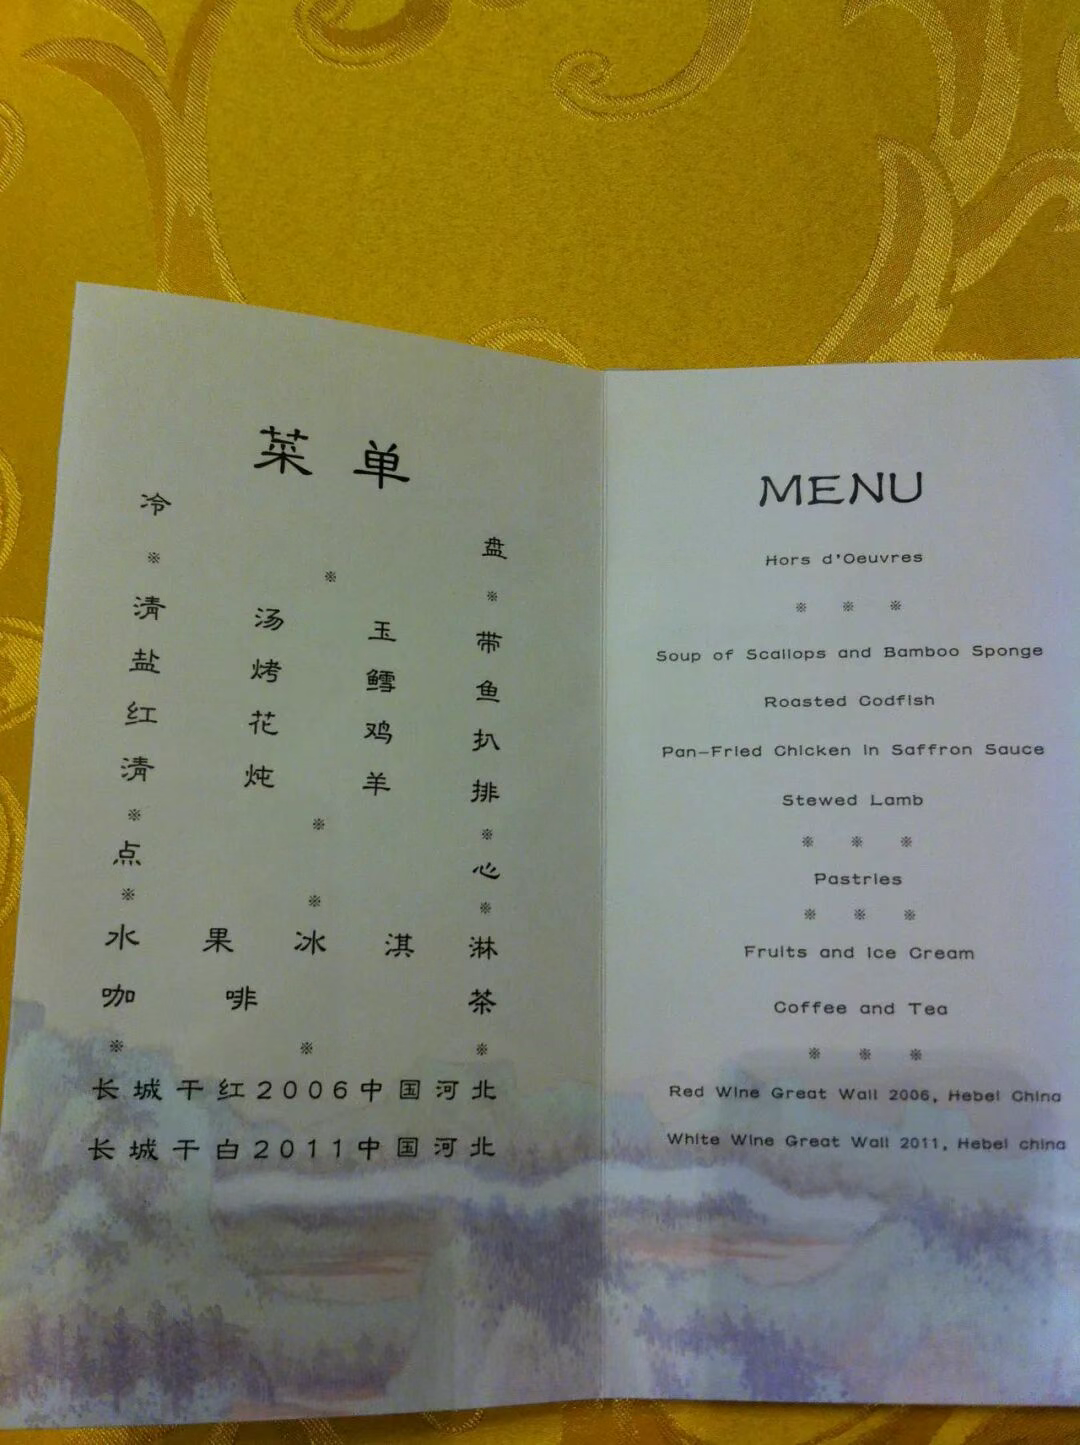 菜单
冷盘
※ ※ ※
清汤玉带
盐烤鳕鱼
红花鸡扒
清炖羊排
※ ※ ※
点心
※ ※ ※
水果冰淇淋
咖啡茶
※ ※ ※
长城干红2006中国河北
长城干白2011中国河北
MENU
Hors d'Oeuvres
※ ※ ※
Soup of Scallops and Bamboo Sponge
Roasted Codfish
Pan-Fried Chicken in Saffron Sauce
Stewed Lamb
※ ※ ※
Pastries
※ ※ ※
Fruits and Ice Cream
Coffee and Tea
※ ※ ※
Red Wine Great Wall 2006, Hebei China
White Wine Great Wall 2011, Hebei china